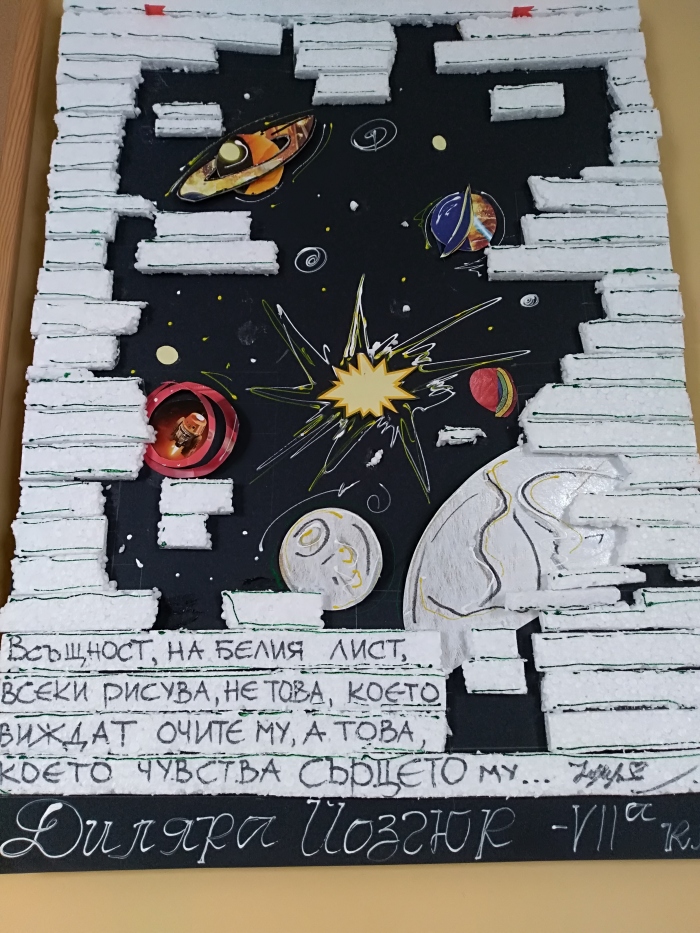 Всъщност, на белия лист,
всеки рисува, не това, което
виждат очите му, а това,
което чувства сърцето му...
Диляра Йозгюр - VIIа кл